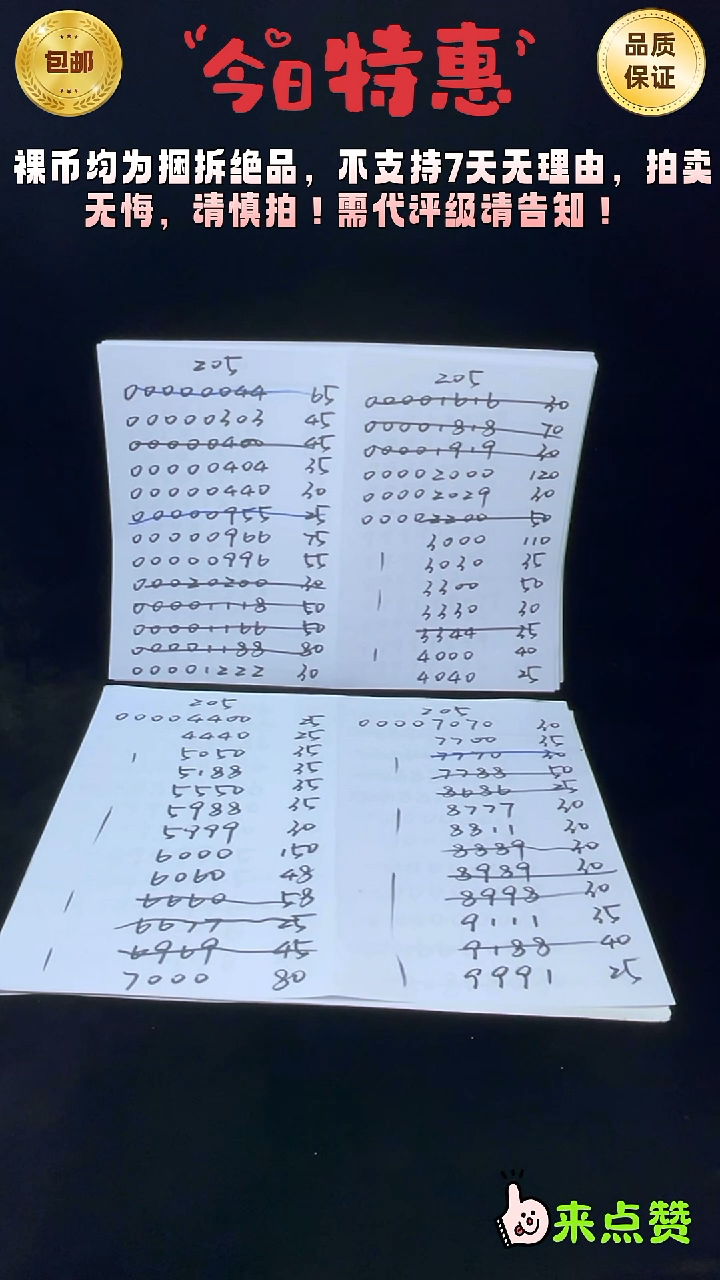 包邮
今日特惠
品质
保证
裸币均为捆拆绝品，不支持7天无理由，拍卖
无悔，请慎拍！需代评级请告知！
205
00000044 65
00000303 45
00000400 45
00000404 35
00000440 30
00000955 25
00000966 75
00000996 55
00020200 30
00001118 50
00001166 50
00001188 80
00001222 30
205
00001616 30
00001818 70
00001919 30
00002000 120
00002029 30
00002200 50
3000 110
3030 35
3300 50
3330 30
3344 35
4000 40
4040 25
205
00004400 25
4440 25
5050 35
5188 35
5550 35
5988 35
5999 30
6000 150
6060 48
6660 58
6677 25
6969 45
7000 80
205
00007070 30
7700 35
7770 30
7788 50
8686 25
8777 30
8811 30
8889 30
8989 30
8998 30
9111 35
9188 40
9991 25
来点赞